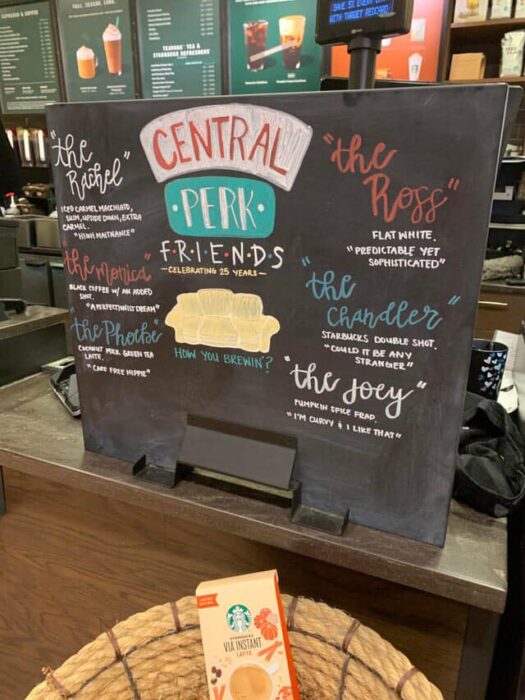 SAVE 5% EVERY
WITH TARGET REDCARD
FALL, SEASONED.
TEAVANA™ TEA &
STARBUCKS REFRESHERS™
CENTRAL
PERK
F•R•I•E•N•D•S
-CELEBRATING 25 YEARS-
HOW YOU BREWIN'?
"the
Rachel"
ICED CARMEL MACCHIATO,
SKIM, UPSIDE DOWN, EXTRA
CARMEL.
"HIGH MAITNANCE"
"the monica"
BLACK COFFEE W/ AN ADDED
SHOT.
"A PERFECTIONIST DREAM"
"the Phoebe"
COCONUT MILK GREEN TEA
LATTE.
"CARE FREE HIPPIE"
"the
Ross"
FLAT WHITE.
"PREDICTABLE YET
SOPHISTICATED"
"the
Chandler"
STARBUCKS DOUBLE SHOT.
"COULD IT BE ANY
STRANGER"
"the Joey"
PUMPKIN SPICE FRAP.
"I'M CURVY & I LIKE THAT"
STARBUCKS
VIA INSTANT
LATTE